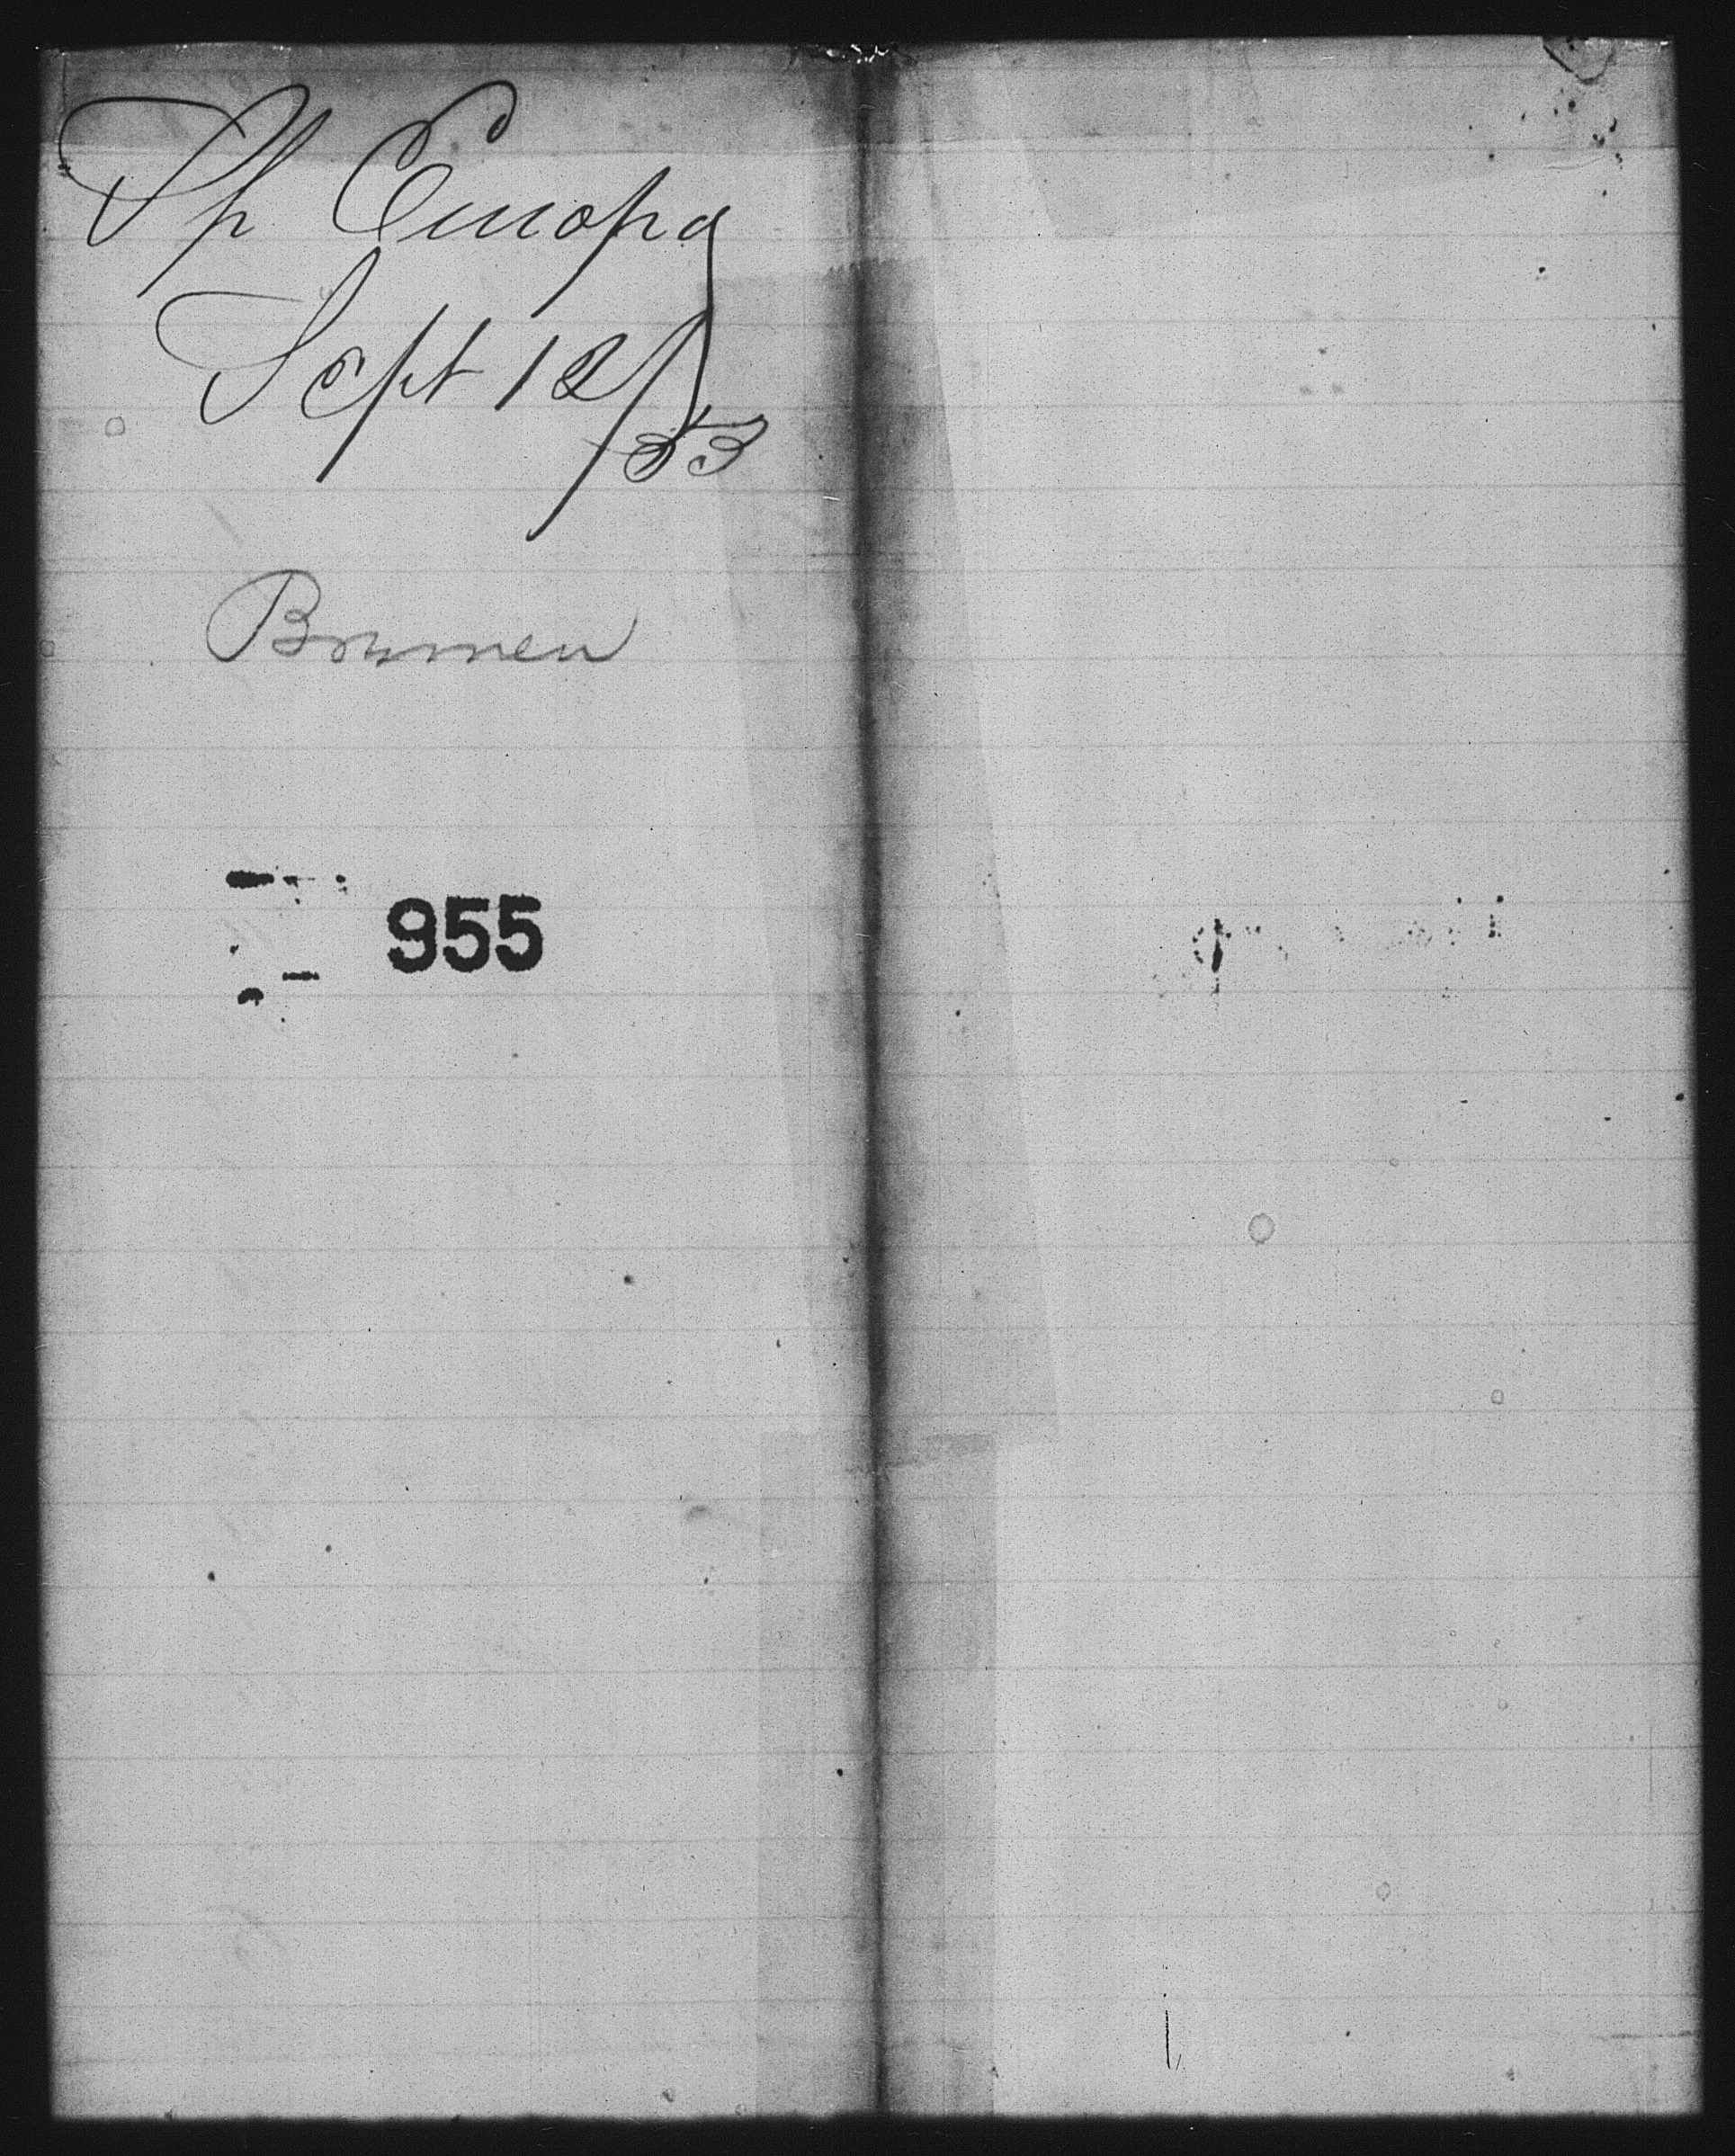 Sh Europa
Sept 12/53
Bremen
955